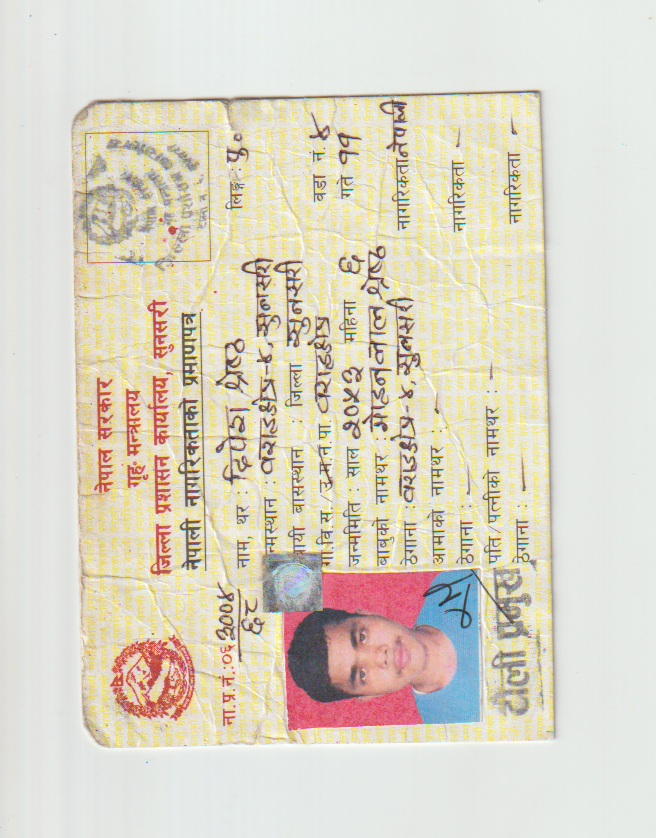 नेपाल सरकार
गृह मन्त्रालय
जिल्ला प्रशासन कार्यालय, सुनसरी
नेपाली नागरिकताको प्रमाणपत्र
ना.प्र.नं.:०६
नाम, थर : दिपेश श्रेष्ठ लिङ्ग : पु०
न्मस्थान : वराहक्षेत्र-४, सुनसरी
थायी बासस्थान : जिल्ला सुनसरी
गा.वि.स./उ.म.न.पा. वराहक्षेत्र वडा नं. ४
जन्ममिति : साल २०४३ महिना ६ गते ११
बाबुको नामथर : मोहनलाल श्रेष्ठ
ठेगाना : वराहक्षेत्र-४, सुनसरी नागरिकता नेपाली
आमाको नामथर : -
ठेगाना : — नागरिकता —
पति/पत्नीको नामथर : —
ठेगाना : — नागरिकता —
टोली प्रमुख